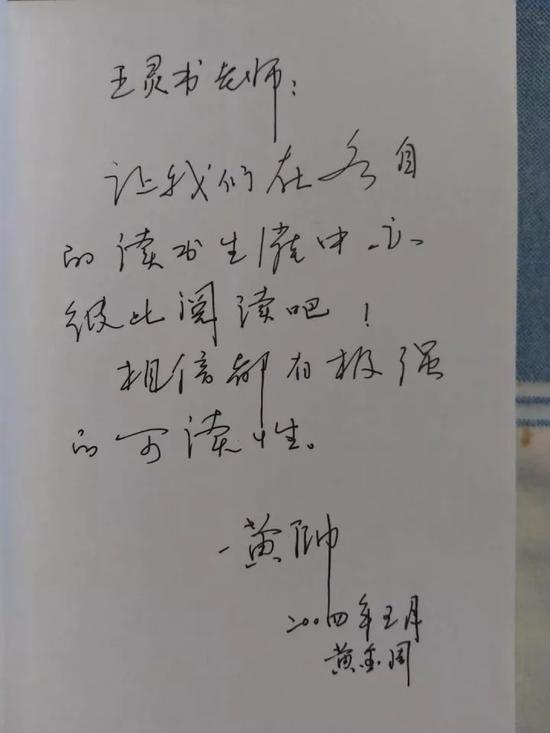 王灵书老师：
让我们在各自
的读书生涯中亦
彼此阅读吧！
相信都有极强
的可读性。
黄帅
二〇〇四年五月
黄金周